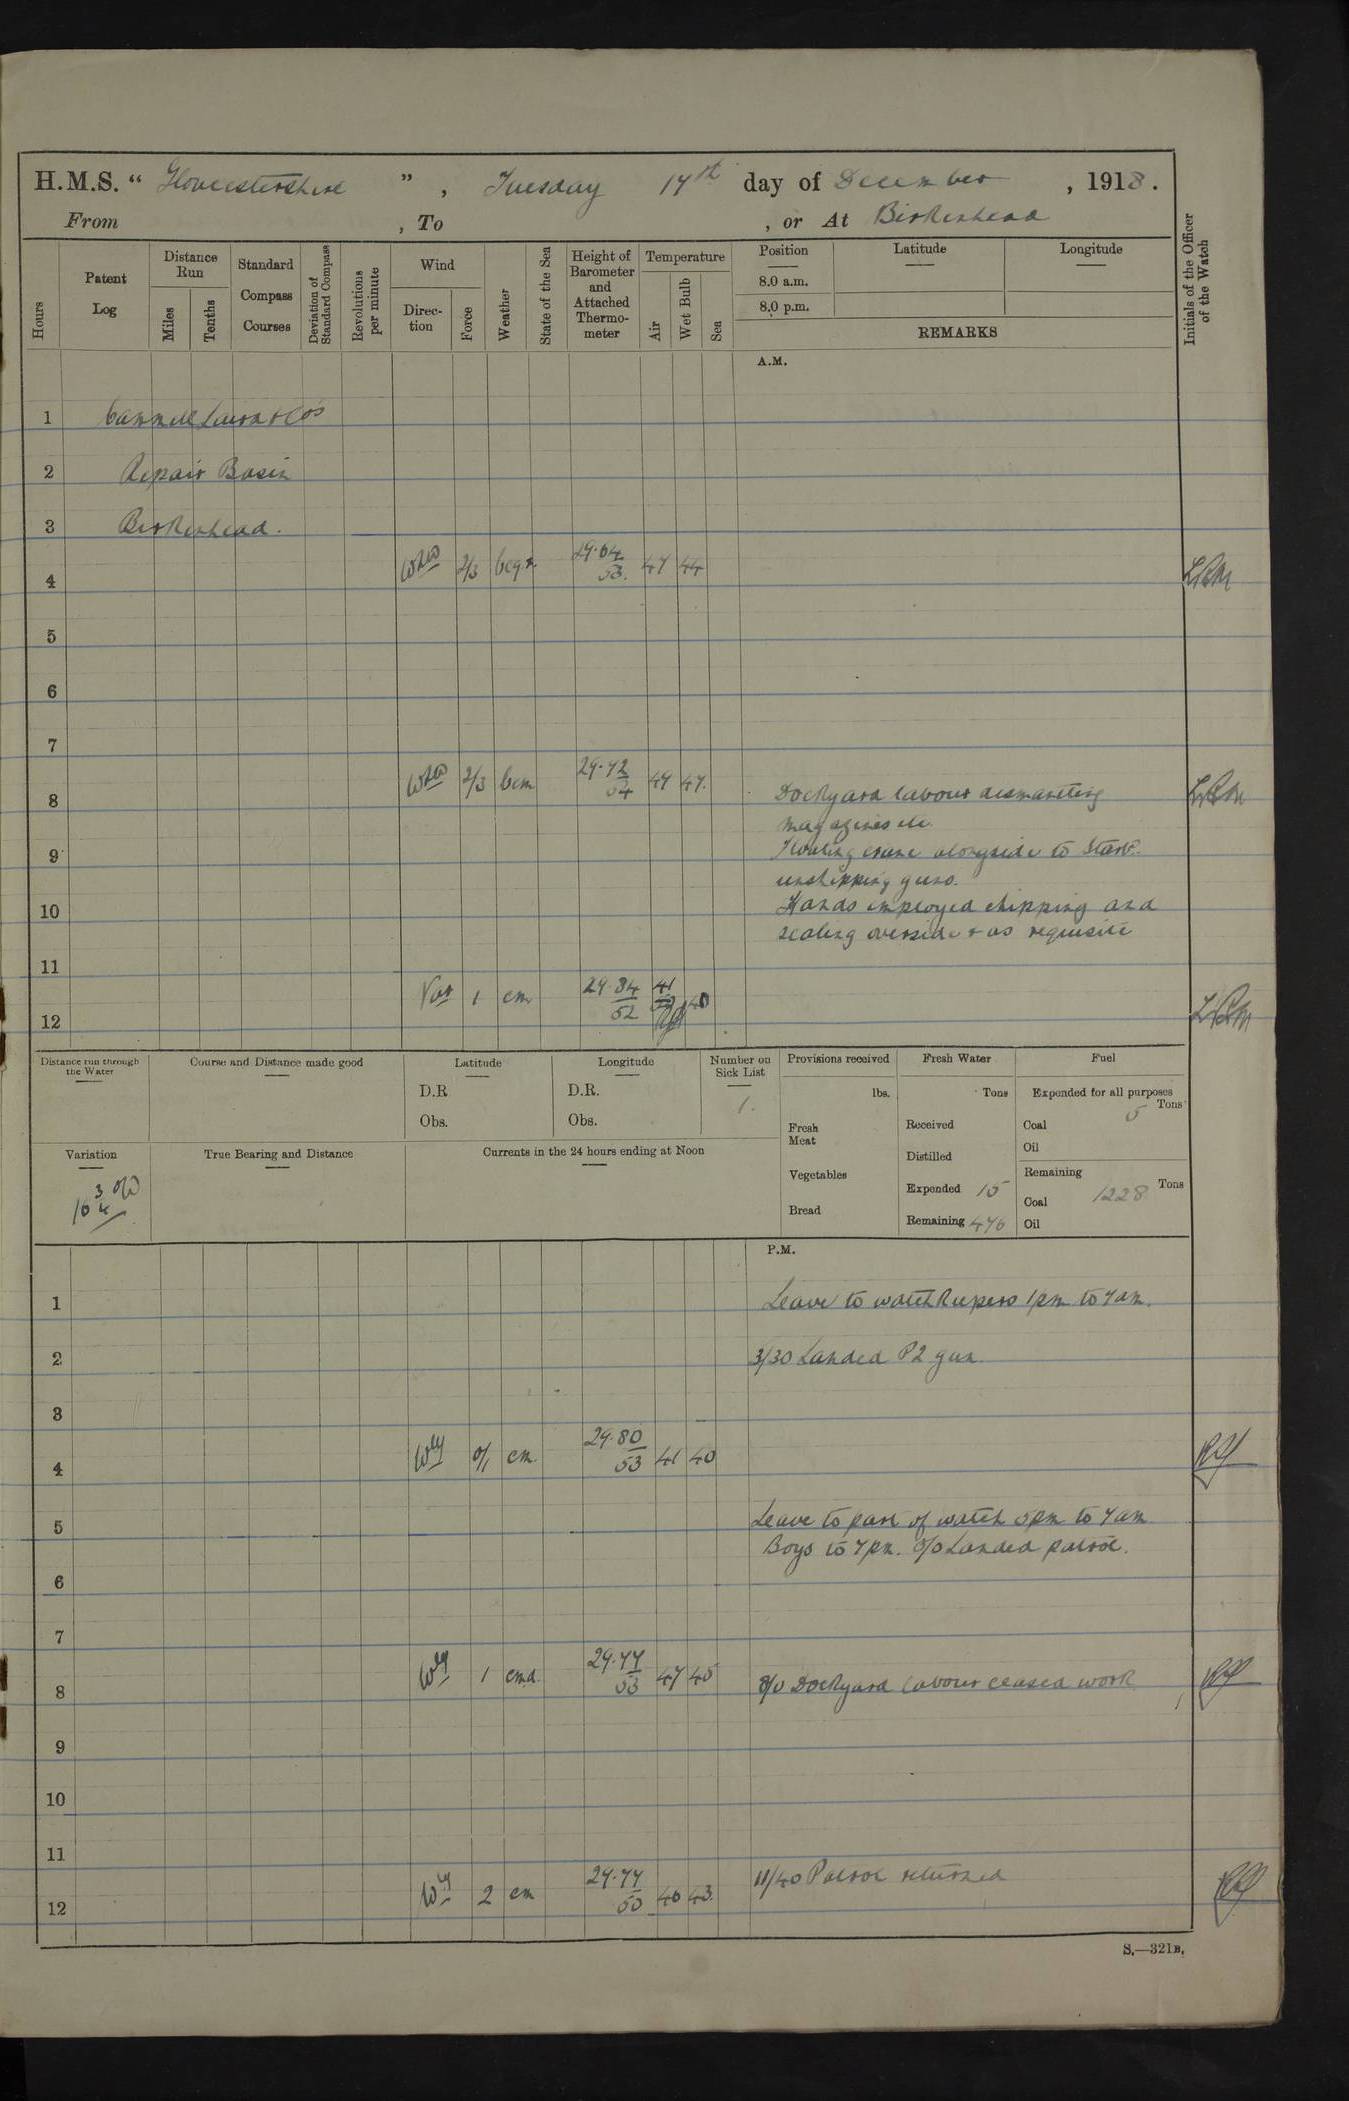 H.M.S. “ Gloucestershire ” , Tuesday 17th day of December , 1918 .
From , To , or At Birkenhead
Hours
Patent Log
Distance Run
Miles
Tenths
Standard Compass Courses
Deviation of Standard Compass
Revolutions per minute
Wind
Direc- tion
Force
Weather
State of the Sea
Height of Barometer and Attached Thermo- meter
Temperature
Air
Wet Bulb
Sea
Position
8.0 a.m.
8.0 p.m.
Latitude
Longitude
REMARKS
Initials of the Officer of the Watch
A.M.
1 Cammell Laird & Co's
2 Repair Basin
3 Birkenhead.
4 2/3 29.64 53. 47 44 LRM
5
6
7
8 2/3 bcm 29.72 54 47 47. Dockyard labour dismantling LRM
magazines etc.
9 Floating crane alongside to Starbd.
unshipping guns.
10 Hands employed chipping and
scaling overside & as requisite
11
12 Var 1 cm 29.84 52 41 40 LRM
Distance run through the Water
Course and Distance made good
Latitude
D.R
Obs.
Longitude
D.R.
Obs.
Number on Sick List
1.
Provisions received
lbs.
Fresh Meat
Vegetables
Bread
Fresh Water
Tons
Received
Distilled
Expended 15
Remaining 476
Fuel
Expended for all purposes
Tons
Coal 5
Oil
Remaining
Tons
Coal 1228
Oil
Variation
16 3/4 °W
True Bearing and Distance
Currents in the 24 hours ending at Noon
P.M.
1 Leave to watchkeepers 1pm to 7am.
2 3/30 Landed P2 gun.
3
4 Wly 0/1 cm. 29.80 53 41 40
5 Leave to part of watch 5pm to 7am
Boys to 7pm. Landed patrol.
6
7
8 Wly 1 cmd. 29.77 53 47 45 8/0 Dockyard labour ceased work
9
10
11
12 Wly 2 cm 29.77 50 46 43. 11/40 Patrol returned
S.—321B.